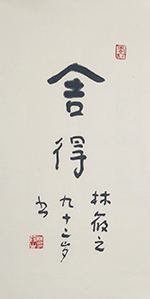 舍得
林筱之
九十二岁
书